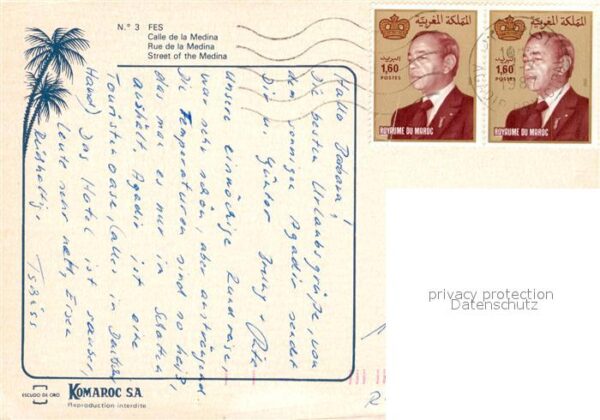 N.º 3 FES
Calle de la Medina
Rue de la Medina
Street of the Medina
المملكة المغربية
البريد
1,60
POSTES
ROYAUME DU MAROC
المملكة المغربية
البريد
1,60
POSTES
ROYAUME DU MAROC
Hallo Barbara!
Die besten Urlaubsgrüße, von
dem sonnigen Agadir sendet
Dir Günter
unsere einwöchige Rundreise,
war sehr schön, aber anstrengend.
Die Temperaturen sind so heiß,
das man es nur im Schatten
aushält. Agadir ist eine
Touristenoase, (alles in Deutscher
Hand) Das Hotel ist sauber,
Leute sehr nett, Essen
reichhaltig. Tschüss
privacy protection
Datenschutz
ESCUDO DE ORO
KOMAROC S.A.
Reproduction interdite